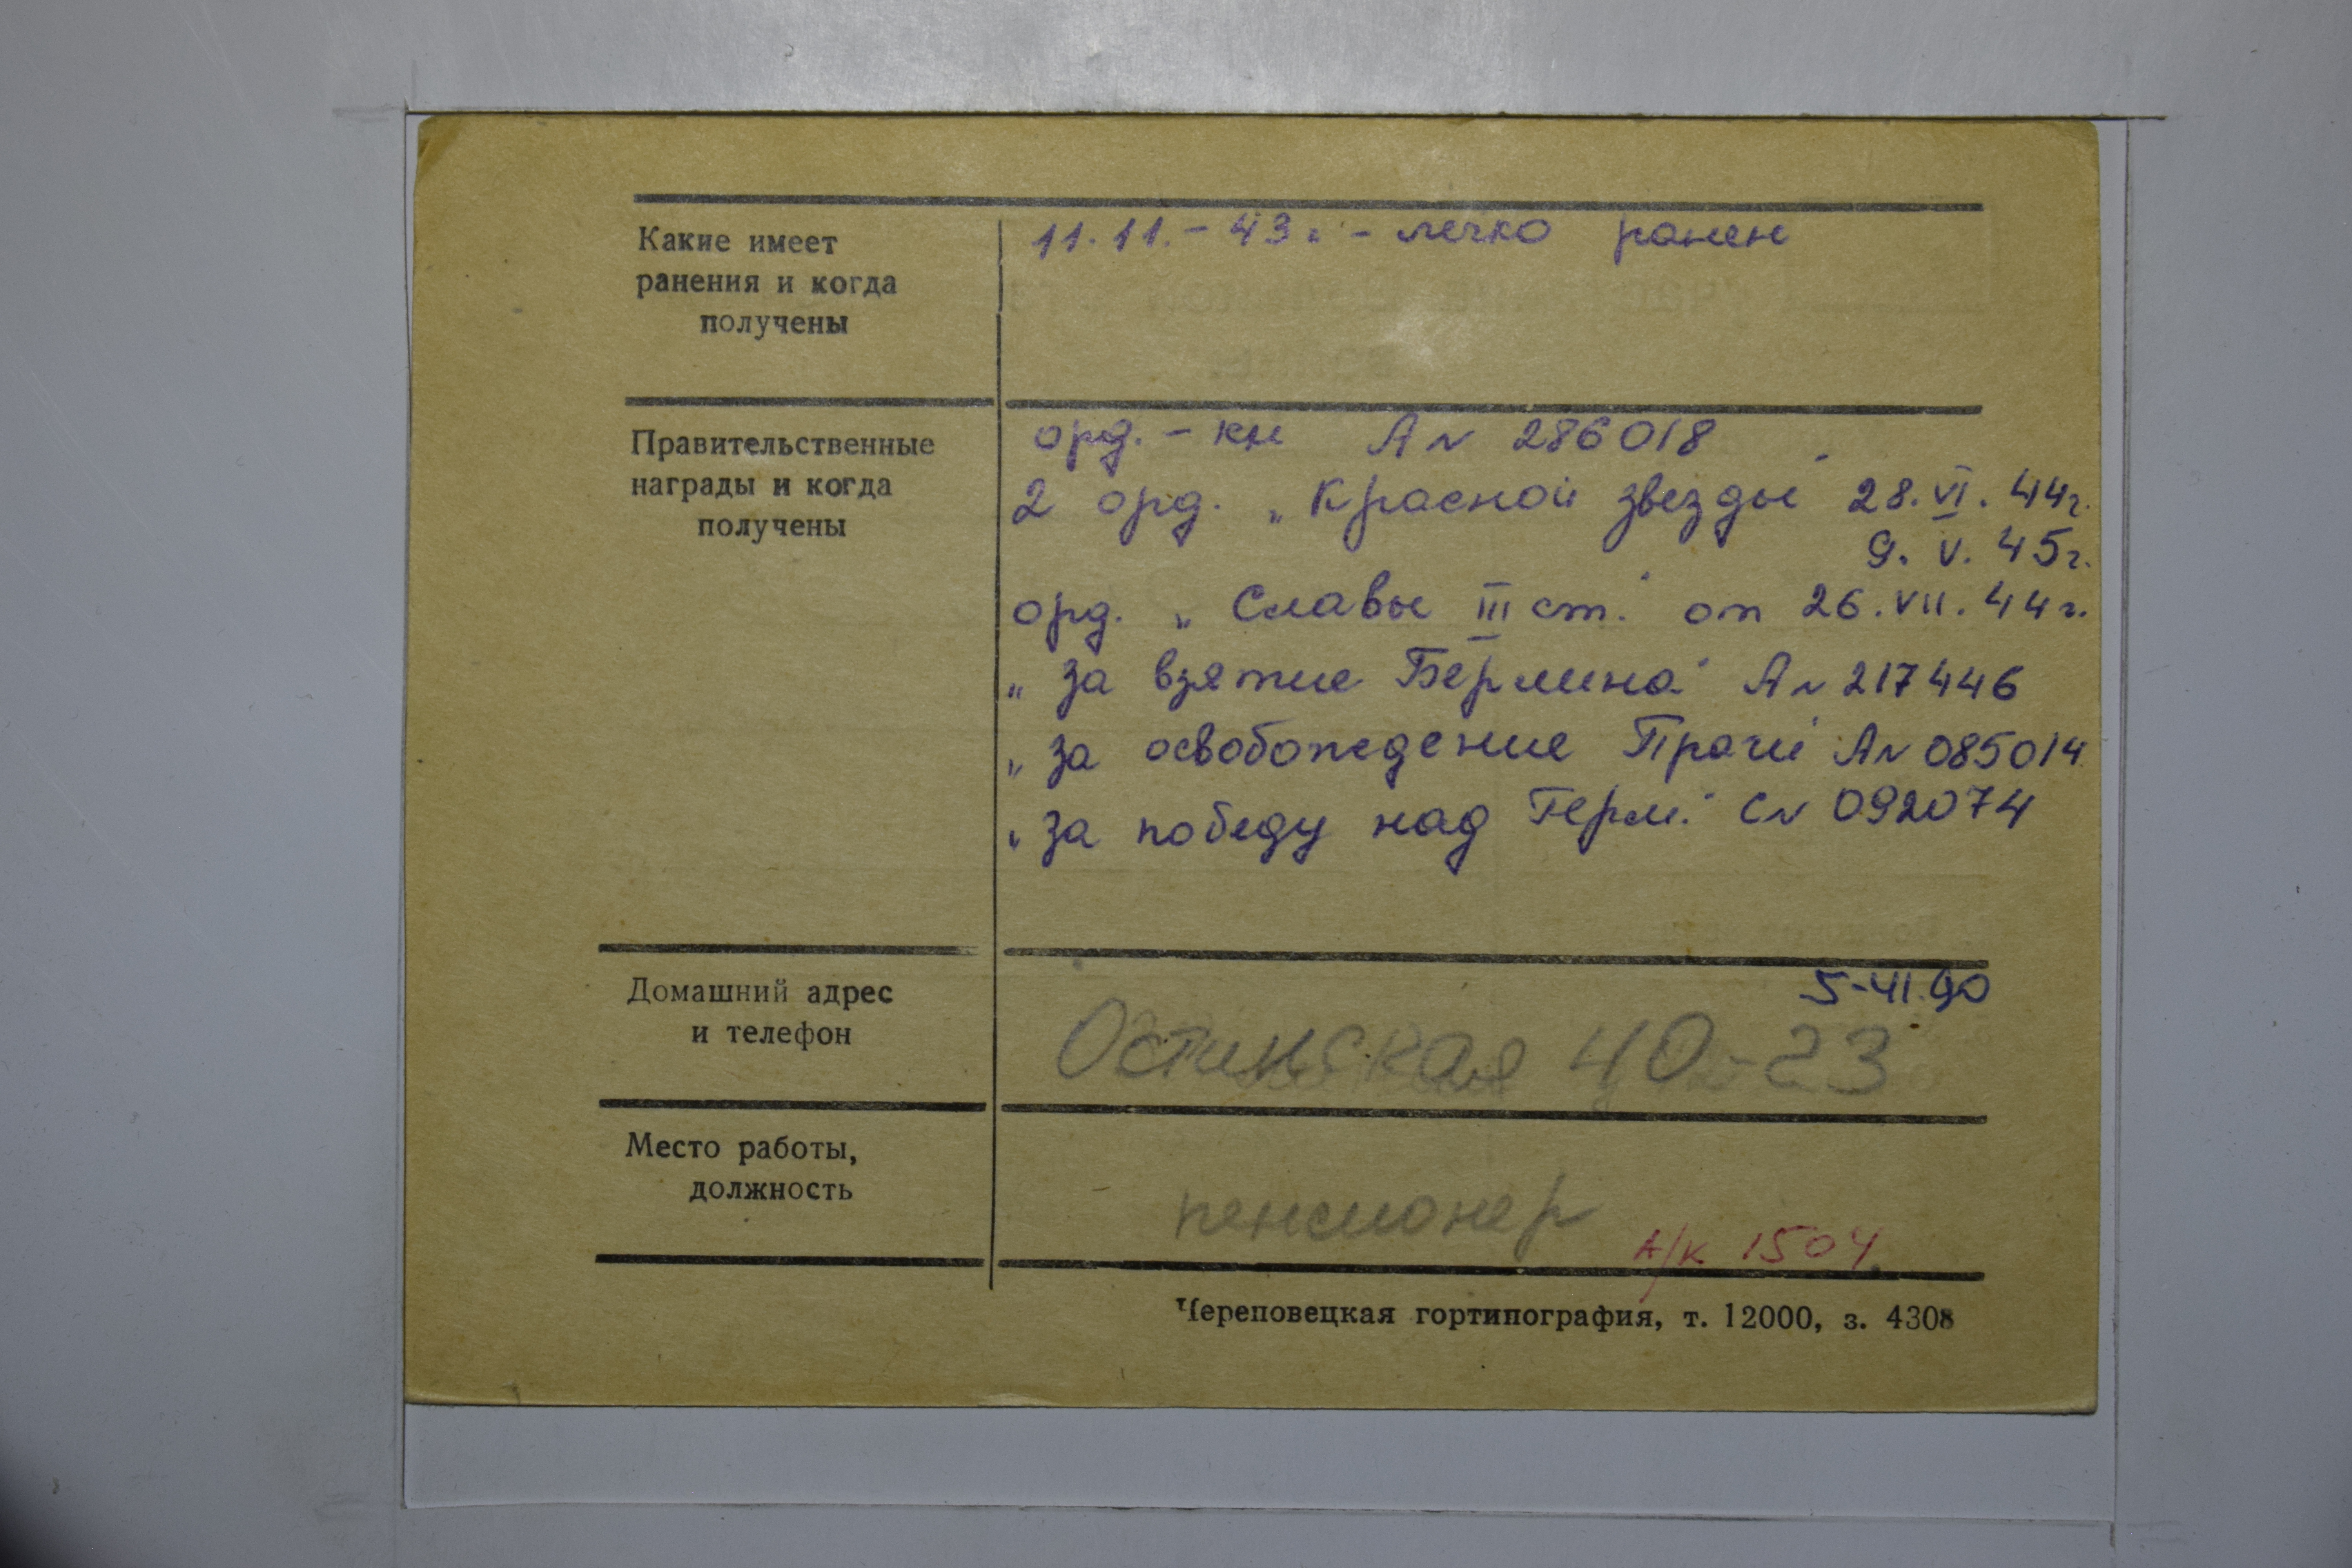 Какие имеет
ранения и когда
получены
11.11.-43г. - легко ранен
Правительственные
награды и когда
получены
орд. - кн А№ 286018
2 орд. „Красной звезды" 28.VI.44г.
9. V. 45г.
орд. „Славы III ст." от 26.VII.44г.
„за взятие Берлина" А№ 217446
„за освобождение Праги" А№ 085014
„за победу над Герм." С№ 092074
Домашний адрес
и телефон
5-41.90
Остинская 40-23
Место работы,
должность
пенсионер
А/К 1504
Череповецкая гортипография, т. 12000, з. 4308